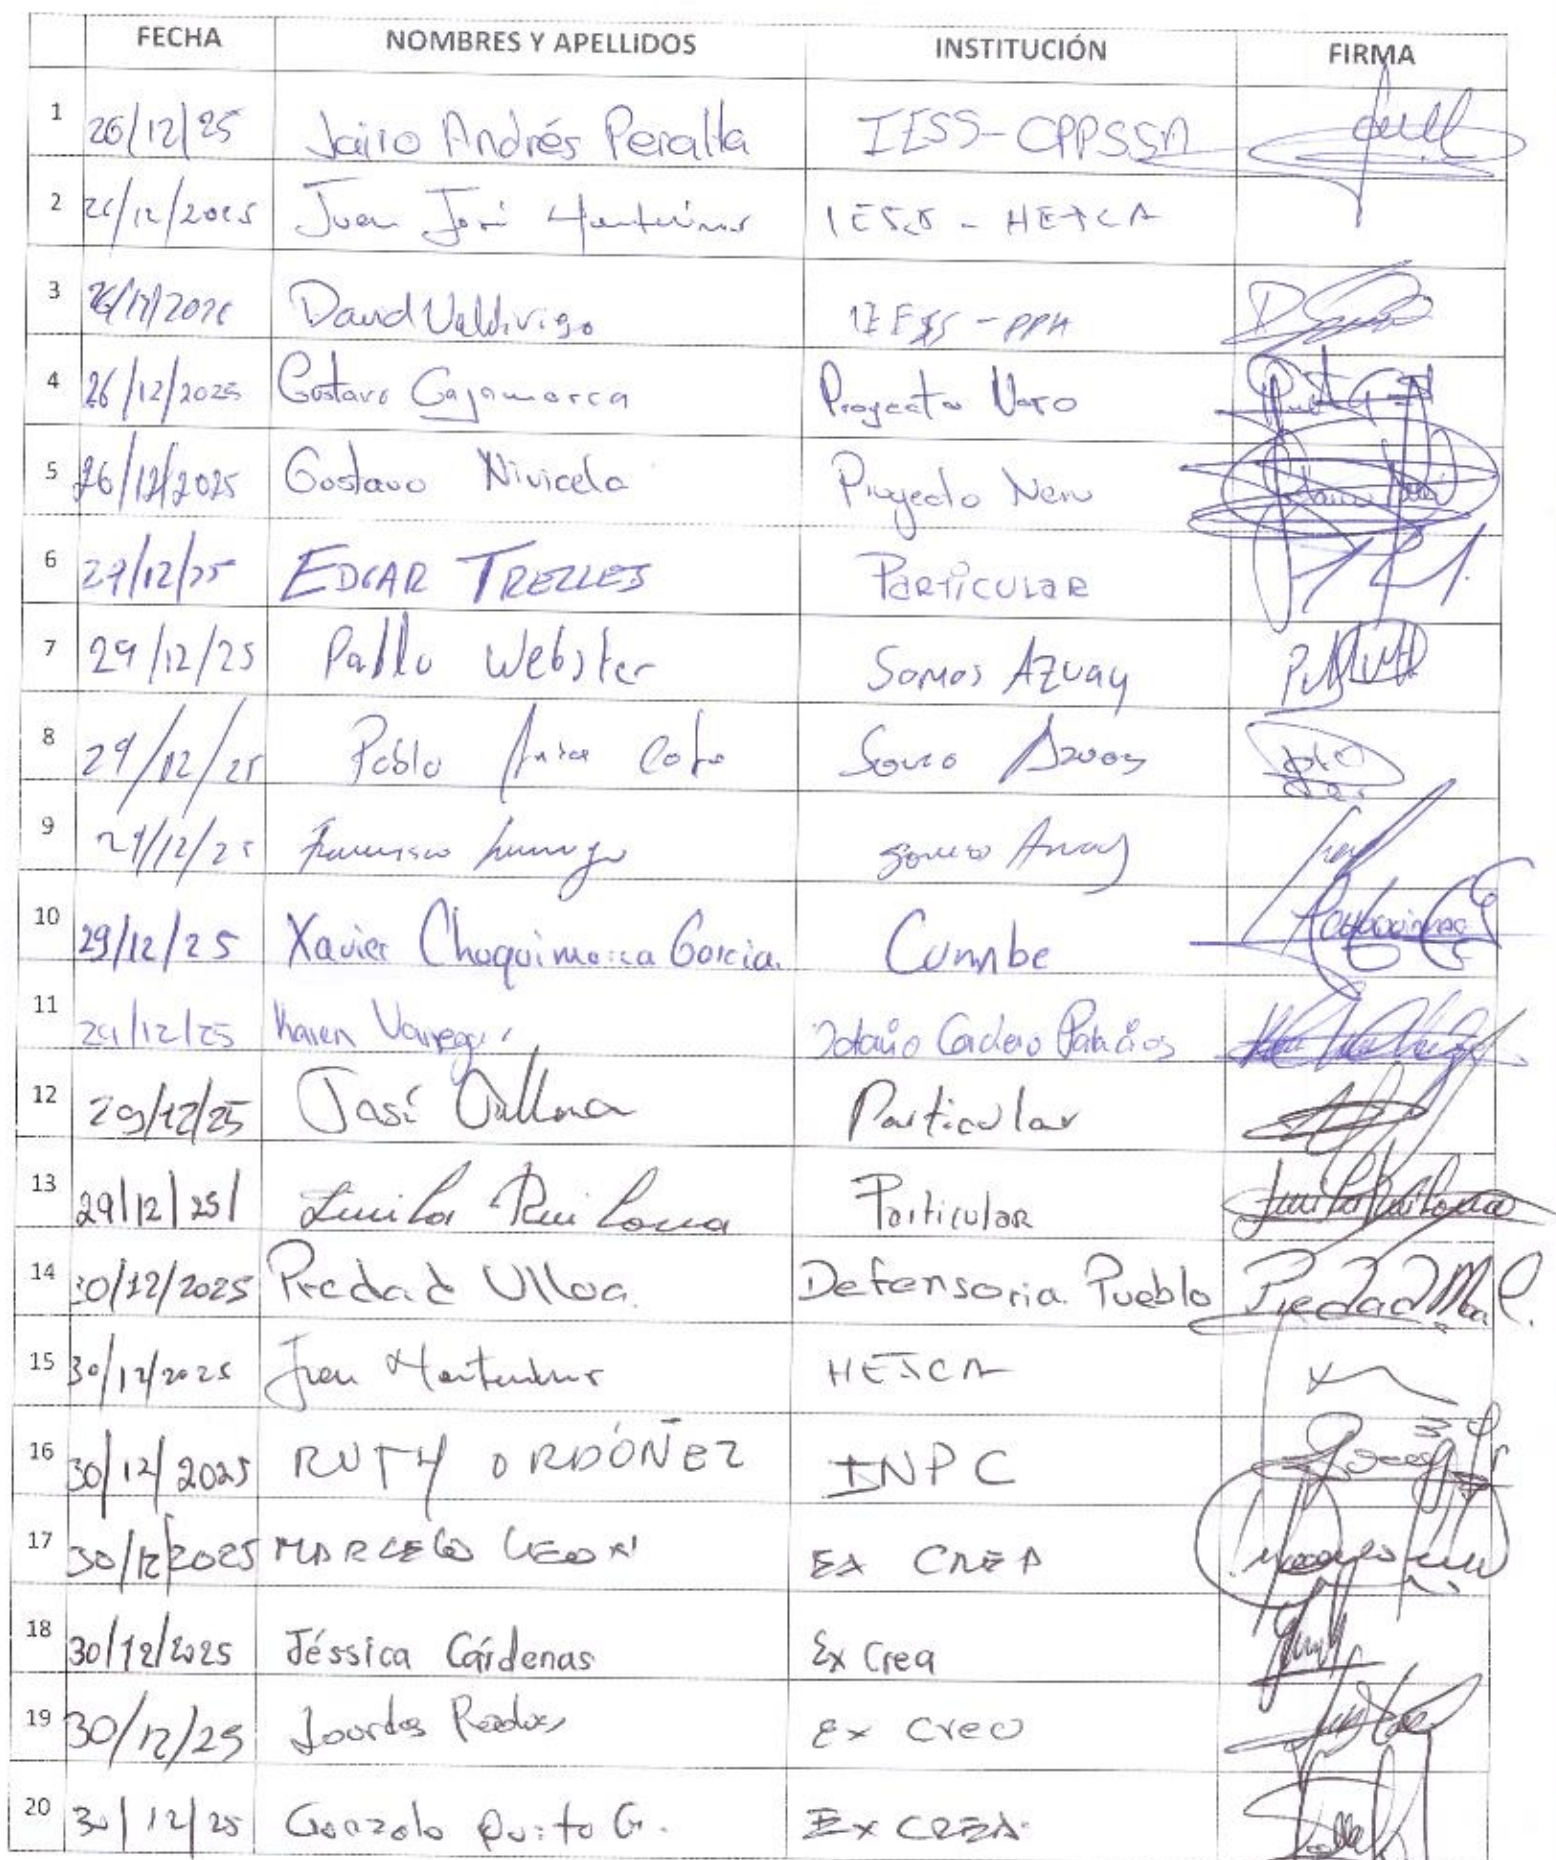 FECHA NOMBRES Y APELLIDOS INSTITUCIÓN FIRMA
1 26/12/25 Jairo Andrés Peralta IESS-CPPSSA
2 26/12/2025 Juan José IESS - HEJCA
3 David Valdiviso IESS - PPH
4 26/12/2025 Gustavo Cajamarca Proyecto Nero
5 26/12/2025 Gustavo Nivicela Proyecto Nero
6 29/12/25 EDGAR TRELLES PARTICULAR
7 29/12/25 Pablo Webster Somos Azuay
8 29/12/25 Pablo Somos Azuay
9 29/12/25 Francisco Somos Azuay
10 29/12/25 Xavier Chuquimarca Garcia. Cumbe
11 29/12/25 Karen Octavio Cordero Palacios
12 29/12/25 José Ulloa Particular
13 29/12/25 Particular
14 30/12/2025 Piedad Ulloa Defensoria Pueblo Piedad
15 30/12/2025 Juan HEJCA
16 30/12/2025 RUTH ORDÓÑEZ INPC
17 30/12/2025 MARCELO LEON EX CREA
18 30/12/2025 Jéssica Cárdenas Ex Crea
19 30/12/25 Lourdes Ex Crea
20 30/12/25 Gonzalo Quito G. Ex CREA